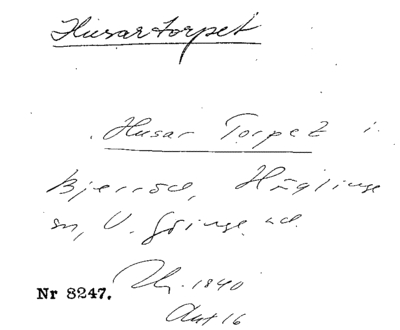 Husartorpet
Husar Torpet i
Bjerröd, Häglinge
sn, V. Göinge hd.
Nr 8247. 1840
Akt 16